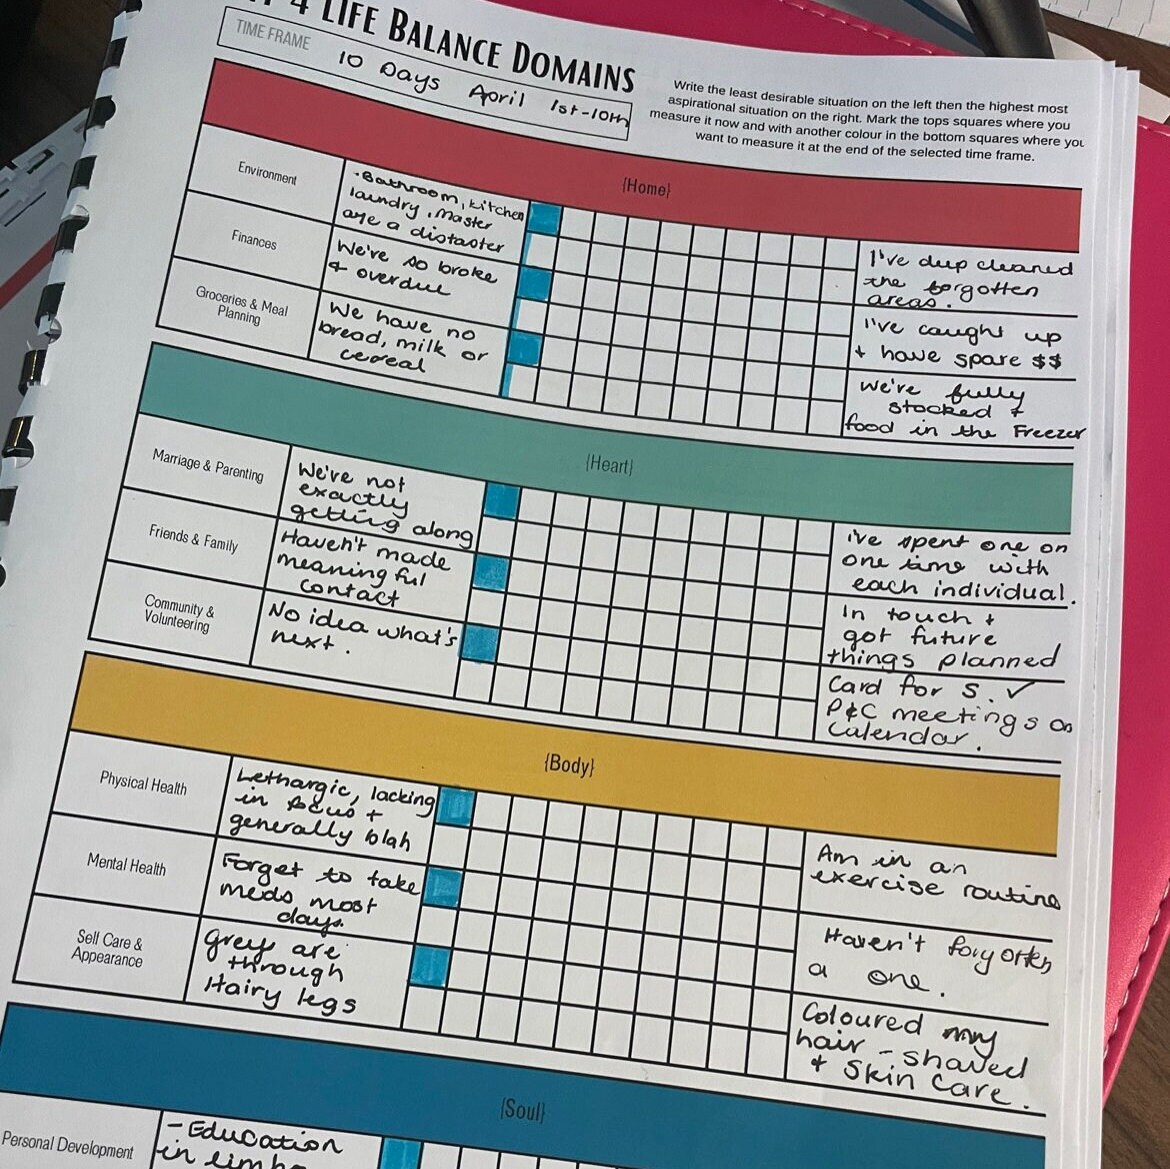 4 LIFE BALANCE DOMAINS
TIME FRAME
10 Days April 1st-10th
Write the least desirable situation on the left then the highest most
aspirational situation on the right. Mark the tops squares where you
measure it now and with another colour in the bottom squares where you
want to measure it at the end of the selected time frame.
{Home}
Environment
· Bathroom, kitchen
laundry, master
are a distaster
I've deep cleaned
the forgotten
areas.
Finances
We're so broke
& overdue
I've caught up
+ have spare $$
Groceries & Meal
Planning
We have no
bread, milk or
cereal
We're fully
stocked +
food in the Freezer
{Heart}
Marriage & Parenting
We're not
exactly
getting along
i've spent one on
one time with
each individual.
Friends & Family
Haven't made
meaningful
contact
In touch +
got future
things planned
Community &
Volunteering
No idea what's
next.
Card for S. ✓
P&C meetings on
Calendar.
{Body}
Physical Health
Lethargic, lacking
in focus +
generally blah
Am in an
exercise routine
Mental Health
Forget to take
meds most
days.
Haven't forgotten
a one.
Self Care &
Appearance
greys are
through
Hairy legs
Coloured my
hair - shaved
+ Skin Care.
{Soul}
Personal Development
- Education
in limbo